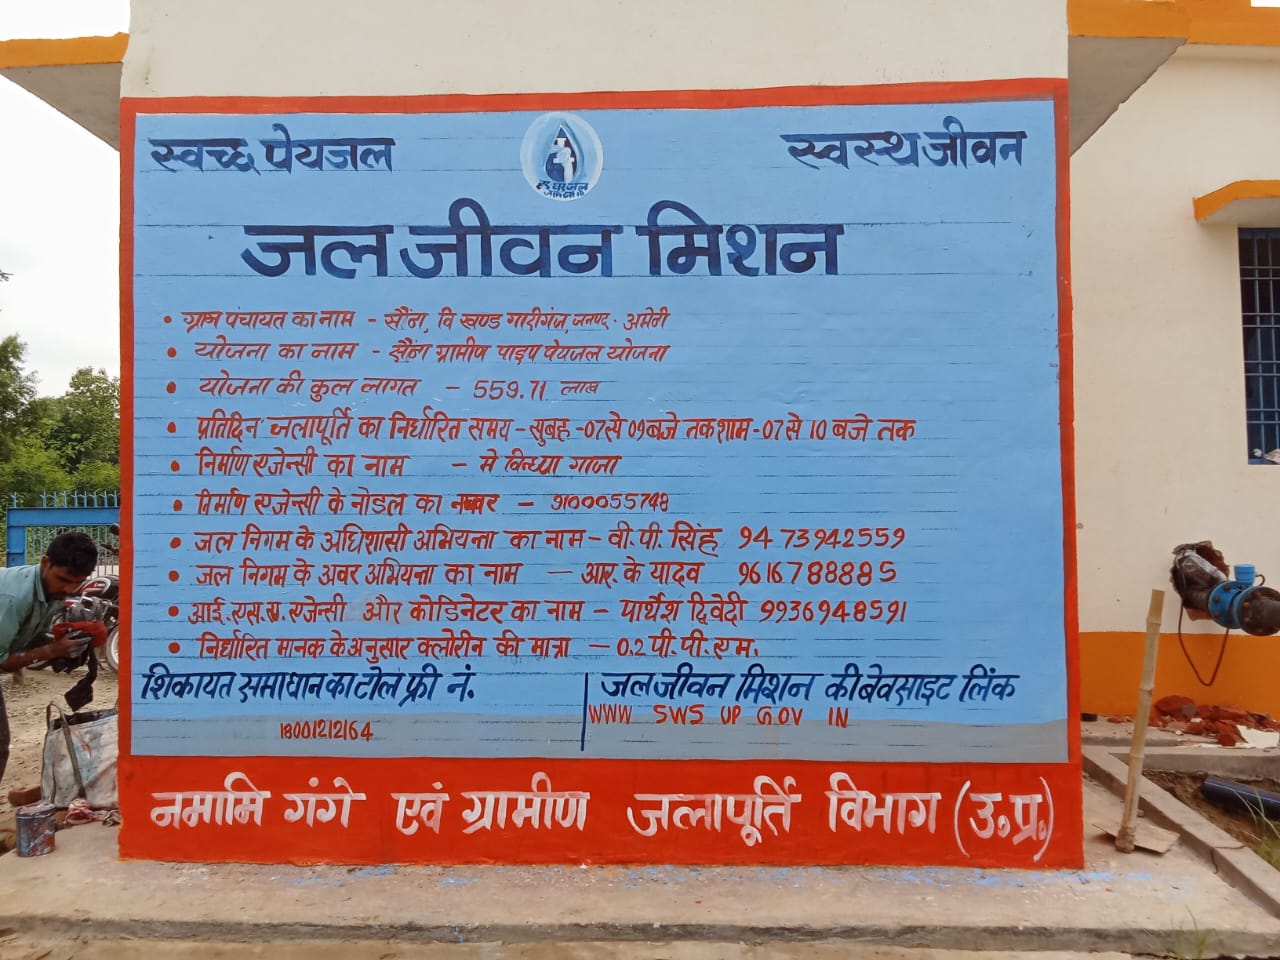 स्वच्छ पेयजल
हर घर जल
स्वस्थ जीवन
जल जीवन मिशन
• ग्राम पंचायत का नाम - सौंना, वि खण्ड गौरीगंज, जनपद - अमेठी
• योजना का नाम - सौंना ग्रामीण पाइप पेयजल योजना
• योजना की कुल लागत - 559.71 लाख
• प्रतिदिन जलापूर्ति का निर्धारित समय - सुबह - 07 से 09 बजे तक शाम - 07 से 10 बजे तक
• निर्माण एजेन्सी का नाम - मे विन्ध्या गाजा
• निर्माण एजेन्सी के नोडल का नम्बर - 9100055748
• जल निगम के अधिशासी अभियन्ता का नाम - वी.पी. सिंह 9473942559
• जल निगम के अवर अभियन्ता का नाम - आर. के यादव 9616788885
• आई.एस.ए. एजेन्सी और कोडिनेटर का नाम - पार्थेश द्विवेदी 9936948591
• निर्धारित मानक के अनुसार क्लोरीन की मात्रा - 0.2 पी.पी.एम.
शिकायत समाधान का टोल फ्री नं.
18001212164
जल जीवन मिशन की बेवसाइट लिंक
WWW SWS UP GOV IN
नमामि गंगे एवं ग्रामीण जलापूर्ति विभाग (उ.प्र.)